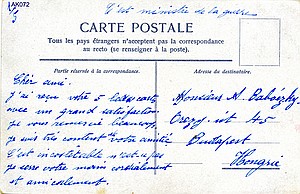 AK072
C'est ministre de la guerre
CARTE POSTALE
Tous les pays étrangers n'acceptent pas la correspondance
au recto (se renseigner à la poste).
Partie réservée à la correspondance.
Adresse du destinataire.
Cher ami!
J'ai reçu votre 5 cartes
avec un grand satisfaction
je vous remercie beaucoup,
je suis très content votre amitié
C'est incontestable n'est-ce pas
je serre votre main cordialement
et amicalement.
Monsieur A.
út 45
Budapest
Hongrie